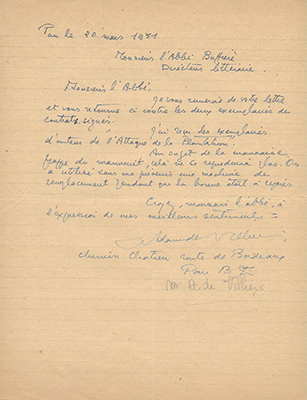 Pau le 20 mars 1951
Monsieur l'Abbé
Directeur littéraire.
Monsieur l'Abbé.
Je vous remercie de votre lettre
et vous retourne ci contre les deux exemplaires de
contrats, signés.
J'ai reçu les exemplaires
d'auteur de l'Attaque de la Plantation.
Au sujet de la mauvaise
frappe du manuscrit, cela ne se reproduira pas. On
a utilisé sans me prévenir une machine de
remplacement pendant que la bonne était à
Croyez, monsieur l'abbé, à
l'expression de mes meilleurs sentiments =
chemin route de Bordeaux
Pau B.
Mr A. de Villiers